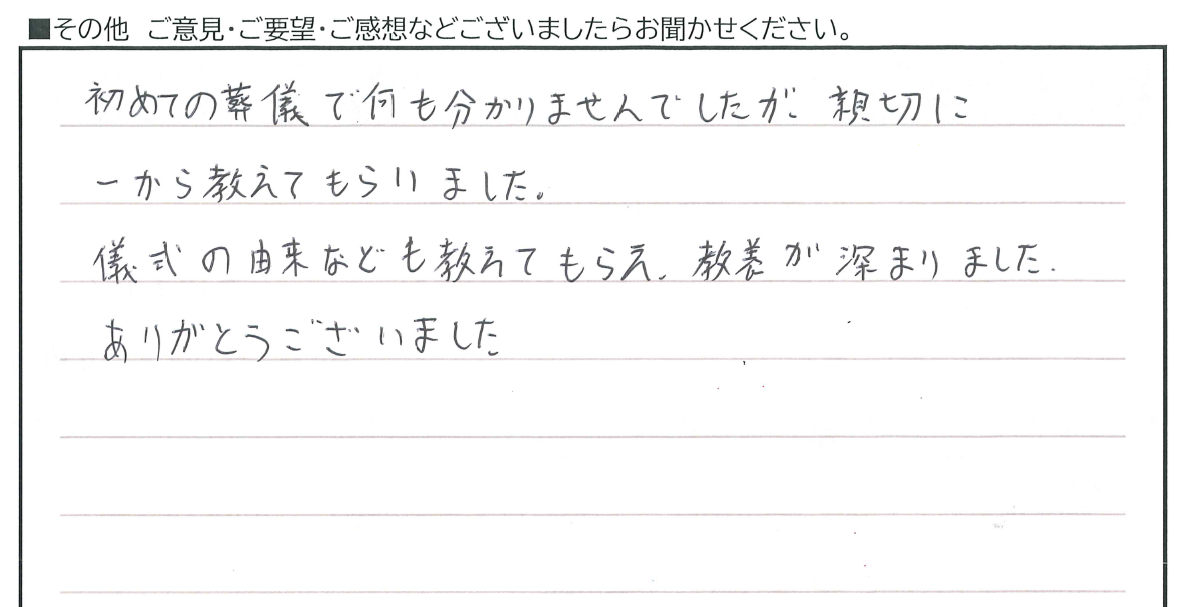 ■その他 ご意見・ご要望・ご感想などございましたらお聞かせください。
初めての葬儀で何も分かりませんでしたが、親切に
一から教えてもらいました。
儀式の由来なども教えてもらえ、教養が深まりました.
ありがとうございました